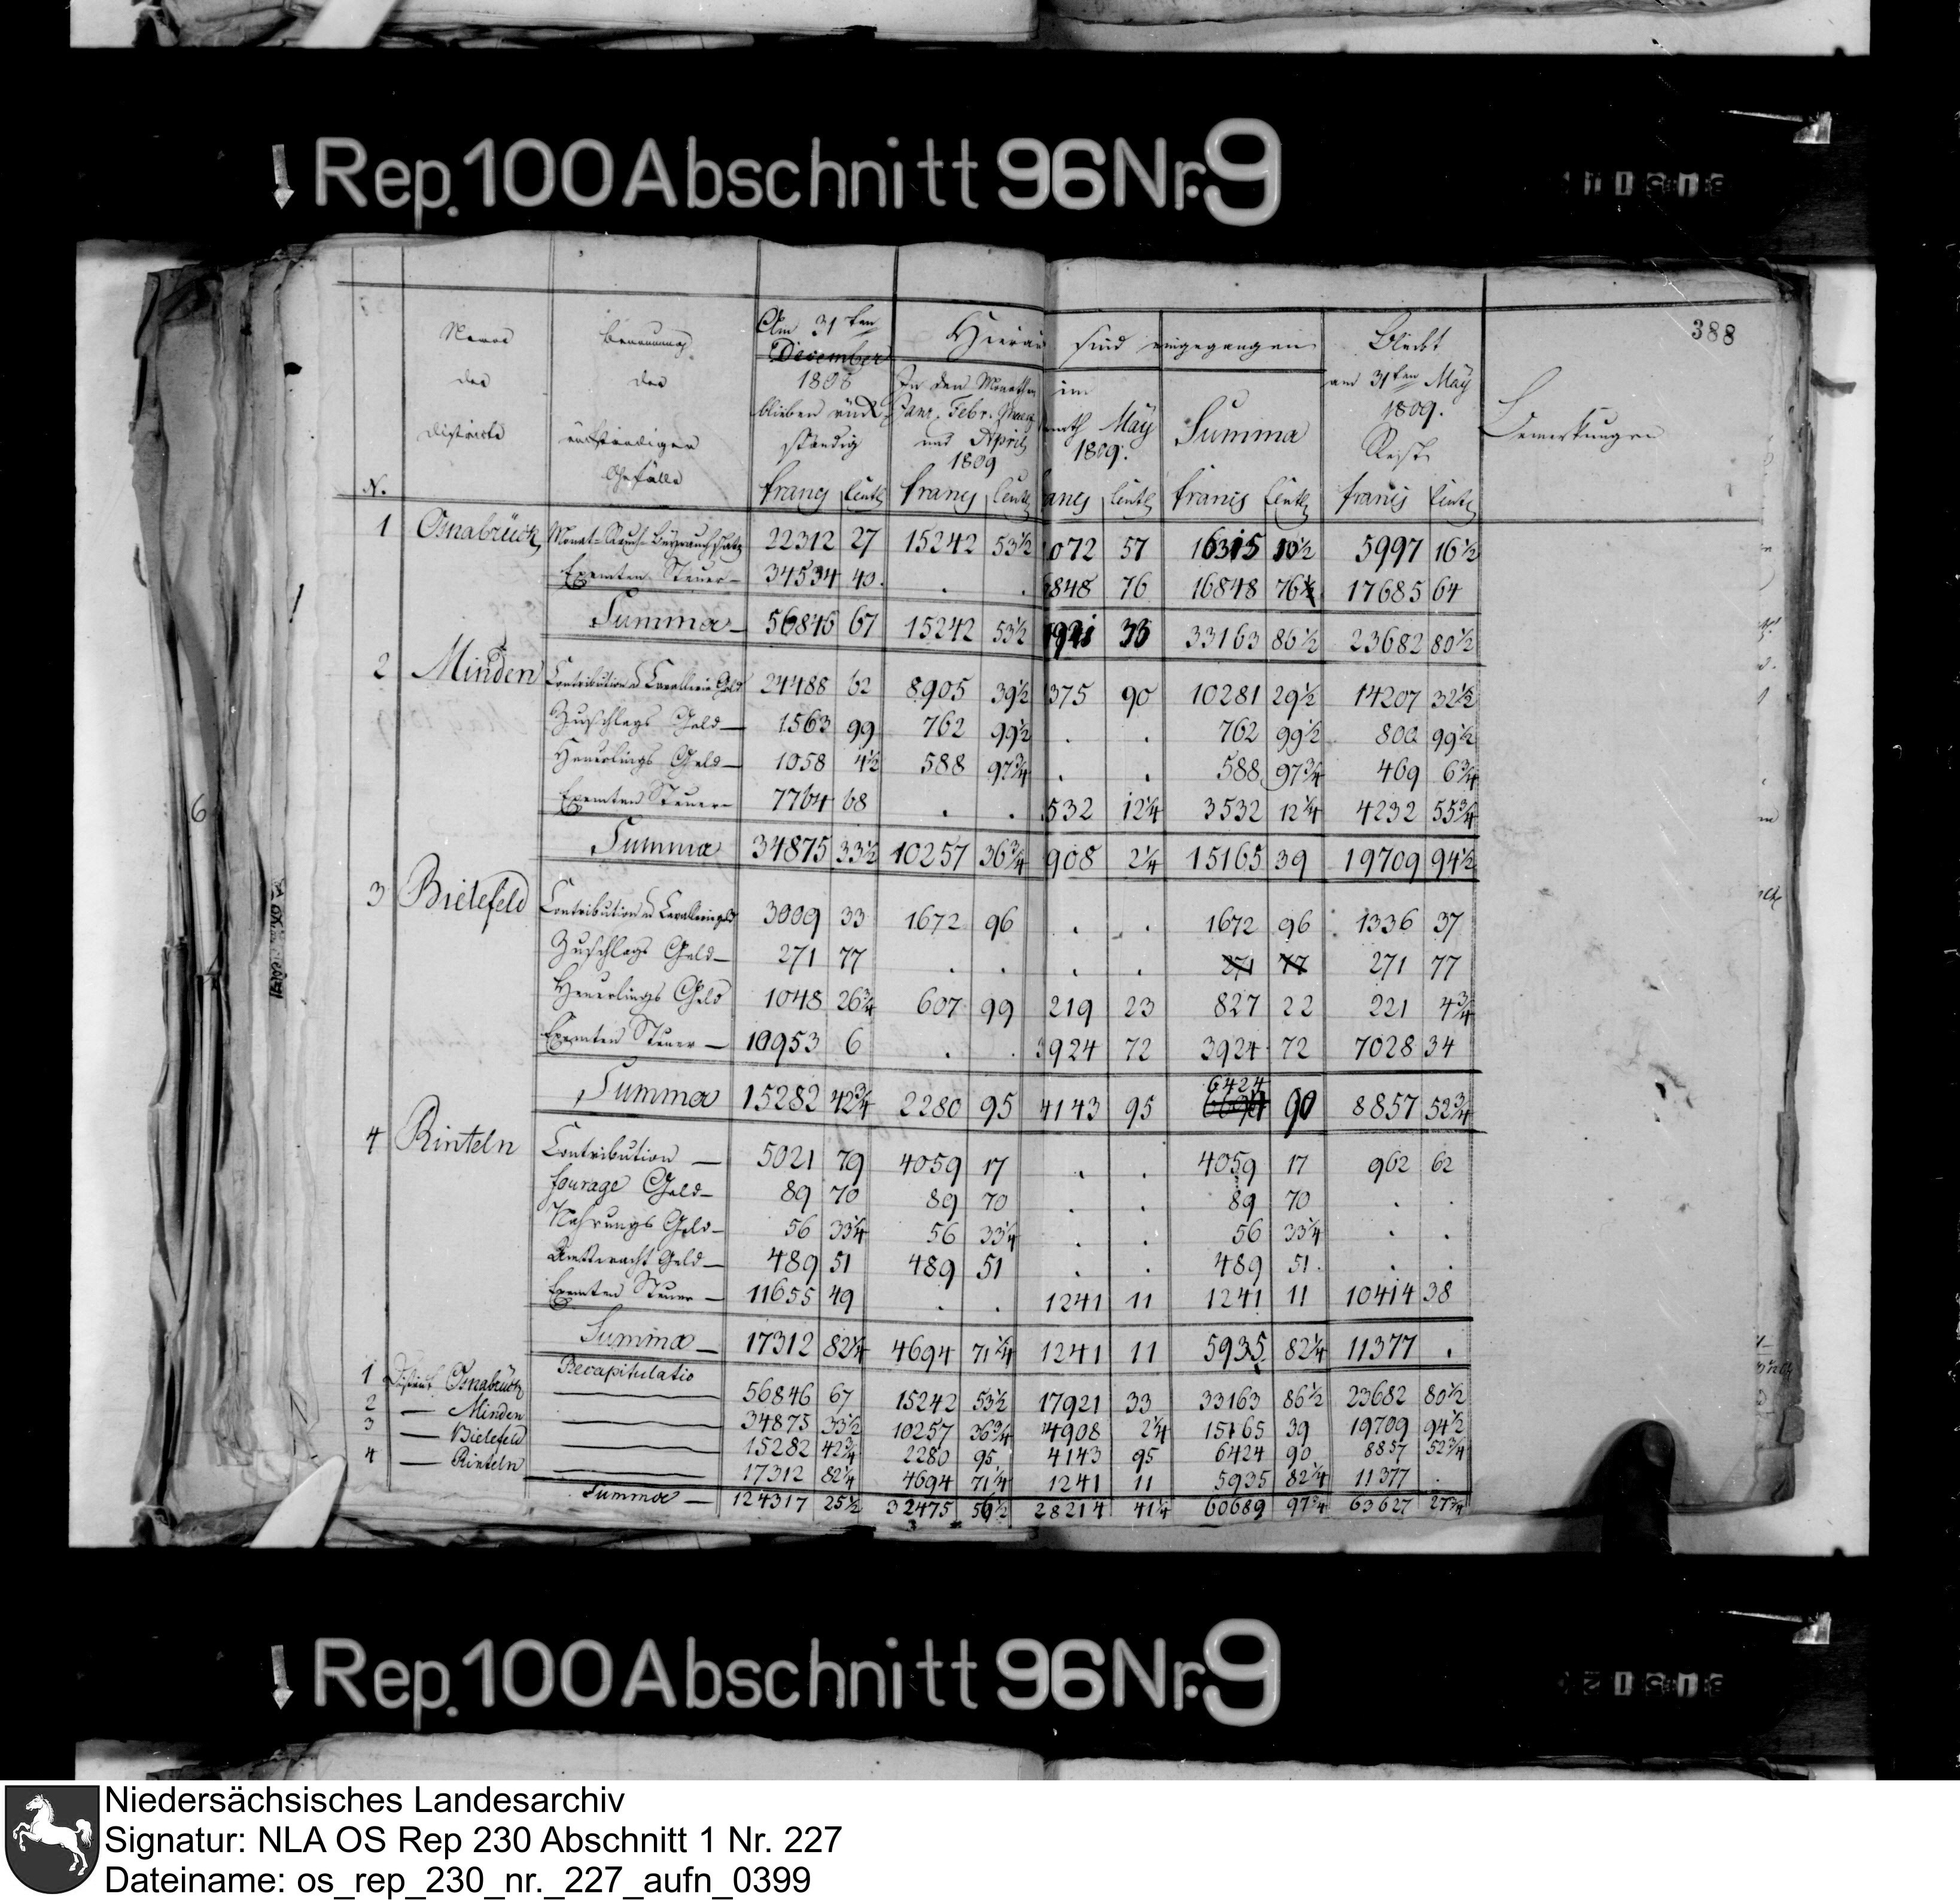 Rep. 100 Abschnitt 96 Nr. 9
388
Name
der
Districte
Benennung
der
rückständigen
Gefälle
Am 31ten
December
1808
blieben rück-
ständig
Hierauf sind eingegangen
In den Monathen
Janr. Febr. Maerz
und April
1809
im
May
1809.
Summa
Bleibt
am 31ten May
1809.
Rest
Bemerkungen
N.
francs Centz francs Centz Centz francs Centz francs Centz
1 Osnabrück 22312 27 15242 53½ 072 57 16315 10½ 5997 16½
Exemten Steuer— 34534 40. . . 848 76 16848 76½ 17685 64
Summa— 56846 67 15242 53½ 33163 86½ 23682 80½
2 Minden Contribution Cavallerie Geld 24488 62 8905 39½ 375 90 10281 29½ 14207 32½
Zuschlags Geld— 1563 99 762 99½ . . 762 99½ 800 99½
Heuerlings Geld— 1058 4½ 588 97¾ . . 588 97¾ 469 6¾
Exemten Steuer— 7764 68 . . 532 12¼ 3532 12¼ 4232 55¾
Summa 34875 33½ 10257 36¾ 908 2¼ 15165 39 19709 94½
3 Bielefeld Contribution Cavalleriegeld 3009 33 1672 96 . . 1672 96 1336 37
Zuschlags Geld— 271 77 . . . . 271 77 271 77
Heuerlings Geld 1048 26¾ 607 99 219 23 827 22 221 4¾
Exemten Steuer— 10953 6 . . 3924 72 3924 72 7028 34
6424
Summa 15282 42¾ 2280 95 4143 95 90 8857 52¾
4 Rinteln Contribution— 5021 79 4059 17 . . 4059 17 962 62
fourage Geld— 89 70 89 70 . . 89 70 . .
Nahrungs Geld— 56 33¼ 56 33¼ . . 56 33¼ . .
Geld— 489 51 489 51 . . 489 51. . .
Exemten Steuer— 11655 49 . . 1241 11 1241 11 10414 38
Summa— 17312 82¼ 4694 71¼ 1241 11 5935 82¼ 11377 .
Recapitulatio
1 District Osnabrück 56846 67 15242 53½ 17921 33 33163 86½ 23682 80½
2 — Minden 34875 33½ 10257 36¾ 4908 2¼ 15165 39 19709 94½
3 — Bielefeld 15282 42¾ 2280 95 4143 95 6424 90 8857 52¾
4 — Rinteln 17312 82¼ 4694 71¼ 1241 11 5935 82¼ 11377 .
Summa— 124317 25½ 32475 56½ 28214 41¼ 60689 97¾ 63627 27¾
Rep. 100 Abschnitt 96 Nr. 9
Niedersächsisches Landesarchiv
Signatur: NLA OS Rep 230 Abschnitt 1 Nr. 227
Dateiname: os_rep_230_nr._227_aufn_0399